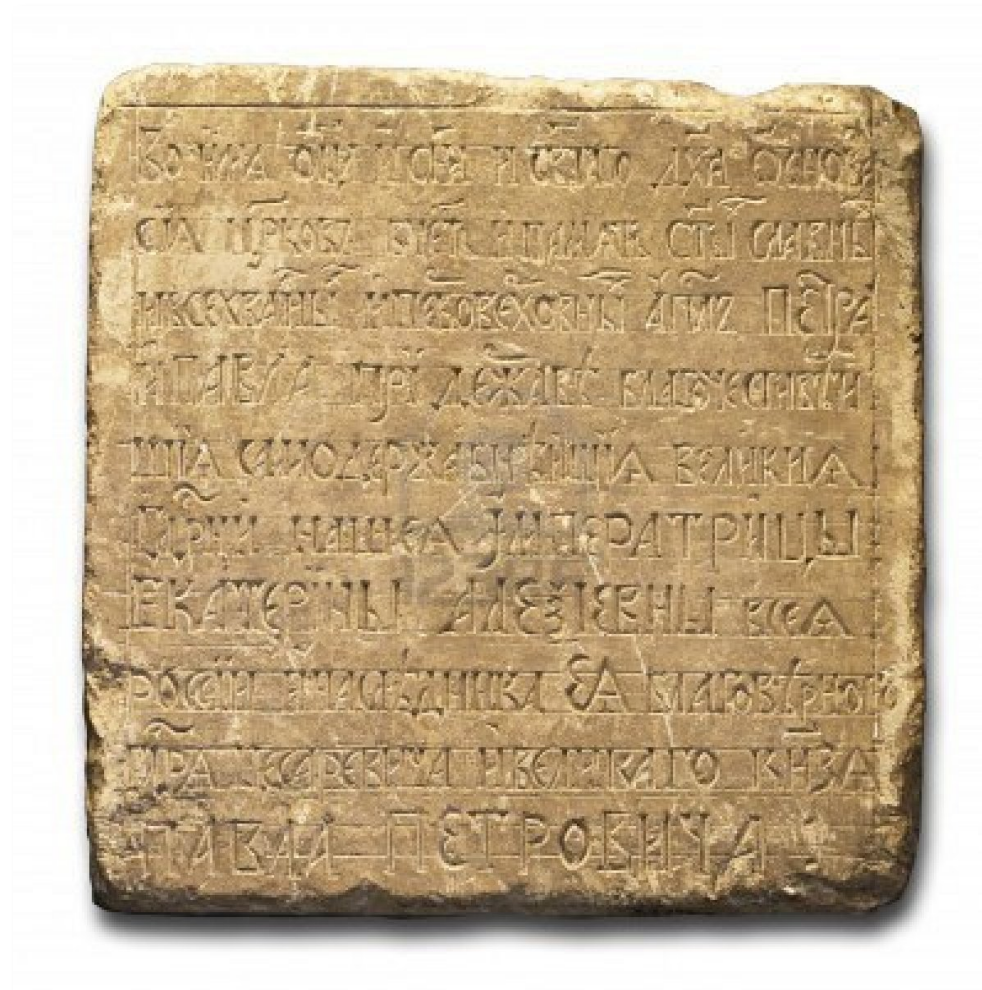 Во имѧ ѻ҃ца и сн҃а и ст҃аго дх҃а ѡснова
сіѧ цр҃ковь въ честь и памѧть ст҃ы славны
и всехвалны и первоверховны ап҃лъ Петра
и Павла при державѣ благочестивѣи
шіѧ самодержавнѣишіѧ великиѧ
гд҃рни нашеѧ императрицы
Екатерины Алеѯіевны всеѧ
россіи и наслѣдника еѧ благовѣрного
гд҃рѧ цесаревича и великаго кнѧзѧ
Павла Петровича